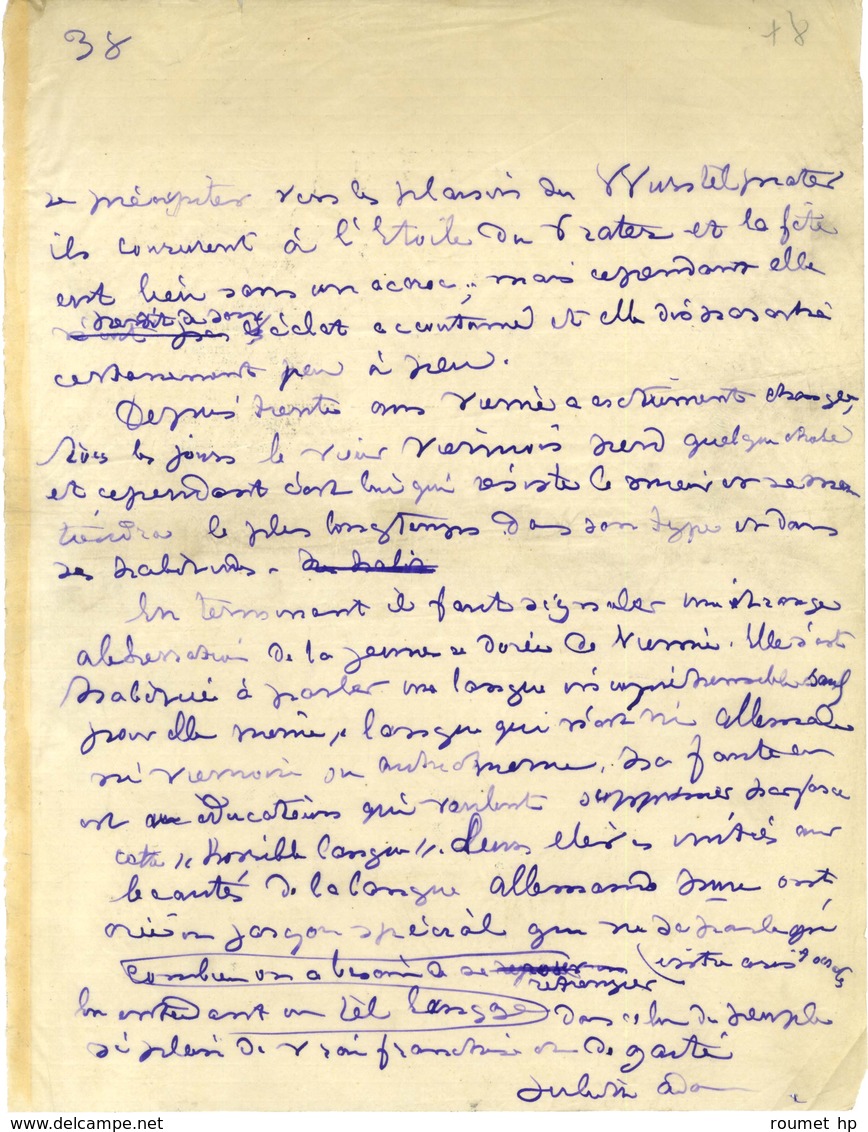 38
+8
se précipiter vers les plaisirs du Wurstelprater
ils coururent à l'Etoile du Prater et la fête
eut lieu sans un accroc; mais cependant elle
perdit de son éclat accoutumé et elle
certainement peu à peu.
Depuis trente ans Vienne a extrêmement changé,
tous les jours le vrai Viennois perd quelque chose
et cependant c'est lui qui résiste le mieux et se
le plus longtemps dans son type et dans
ses habitudes.
En terminant il faut signaler une étrange
de la jeunesse dorée de Vienne. Elle s'est
habituée à parler une langue incompréhensible sauf
pour elle même, langue qui n'est ni allemande
ni viennoise ou autrichienne. La faute en
est aux éducateurs qui veulent supprimer
cette "horrible langue". Leurs élèves initiés aux
beautés de la langue allemande pure ont
créé un jargon spécial qui ne se parle qu'
entre
Combien on a besoin de se
en entendant un tel langage dans celui du peuple
si plein de vraie franchise et de gaité
Juliette Adam
roumet hp